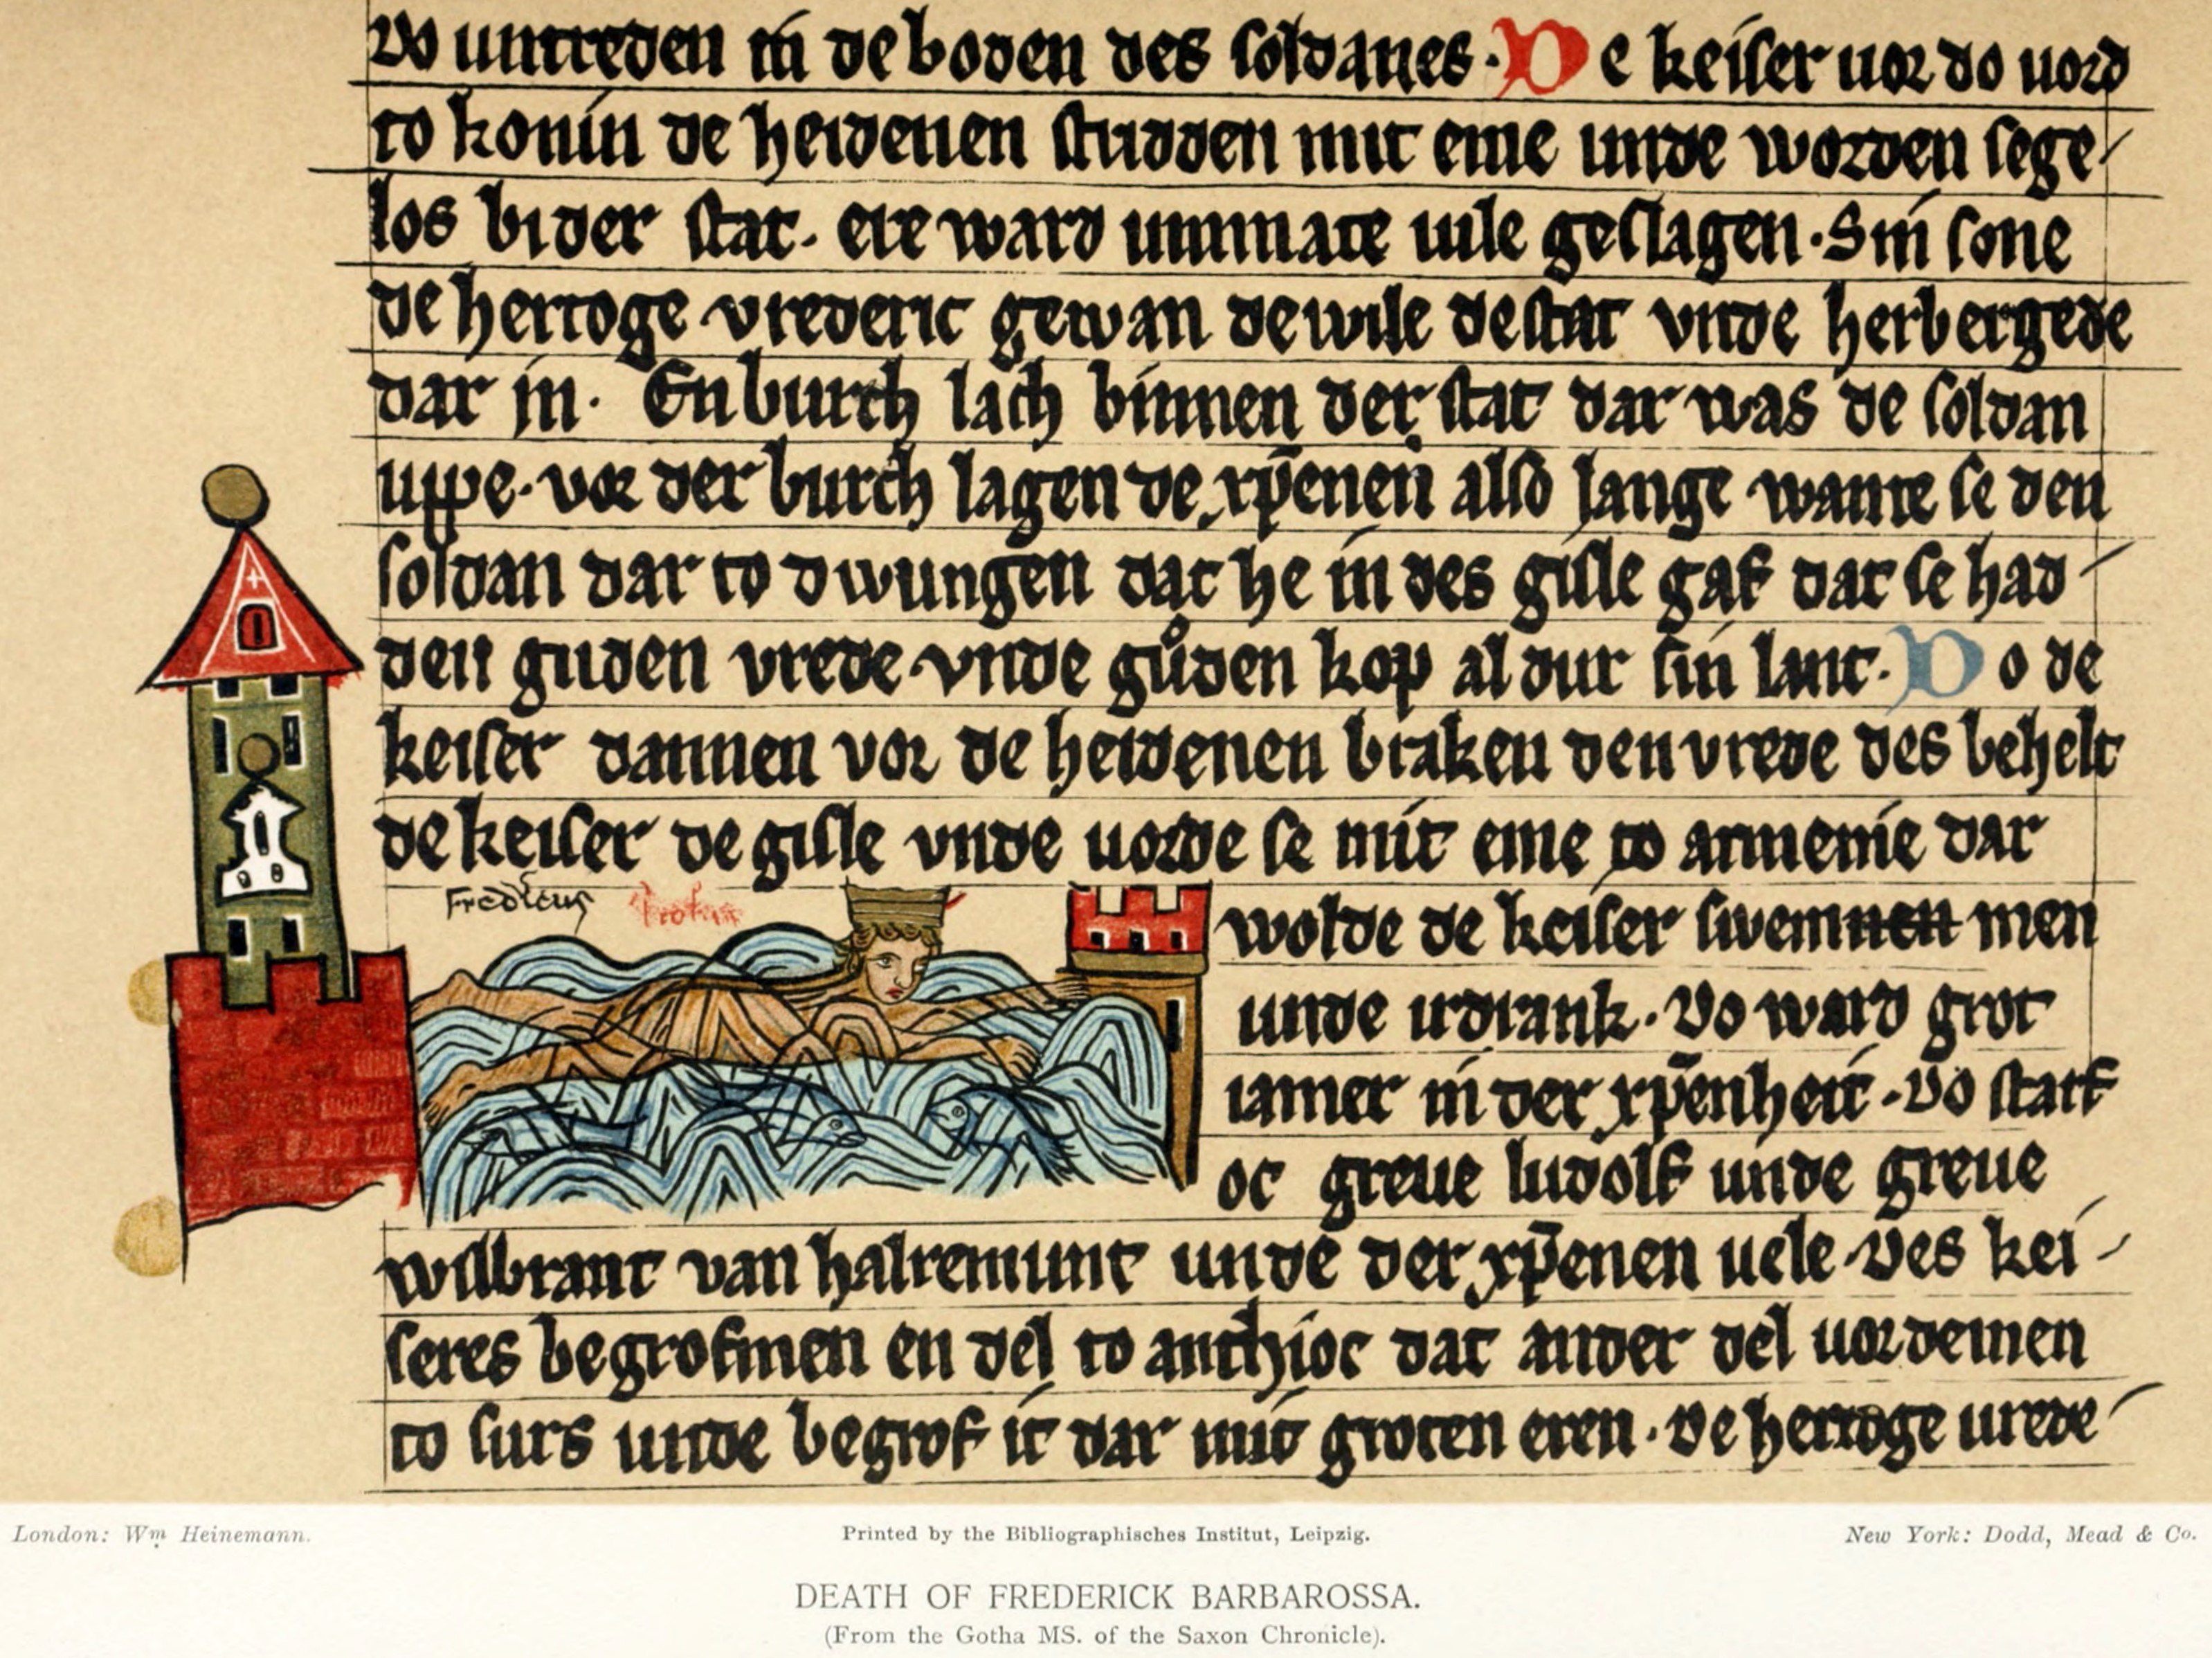 Do untreden in de boden des soldanes · De keiser uor do uord
to konin de heidenen studden mit eme unde worden sege-
los bi der stat · ere ward unmate uile geslagen · Sin sone
de hertoge vrederic gewan de wile de stat vnde herbergede
dar in · En burch lach binnen der stat dar was de soldan
uppe · vor der burch lagen de xp̄enen also lange wante se den
soldan dar to dwungen dat he in des gisle gaf dat se had-
den guden vrede vnde gůden kop al dur sin lant · Do de
keiser dannen vor de heidenen braken den vrede des behelt
de keiser de gisle vnde uorde se mit eme to armenie dar
Fredicus
wolde de keiser swemmen men
unde irdrank · Do ward grot
iamer in der xp̄enheit · Do starf
oc greue ludolf unde greue
wilbrant van halremunt unde der xp̄enen uele · Des kei-
seres begrofmen en del to anthioc dat ander del uordemen
to surs unde begrof it dar mit groten eren · De hertoge urede-
London: Wm Heinemann.
Printed by the Bibliographisches Institut, Leipzig.
New York: Dodd, Mead & Co.
DEATH OF FREDERICK BARBAROSSA.
(From the Gotha MS. of the Saxon Chronicle).